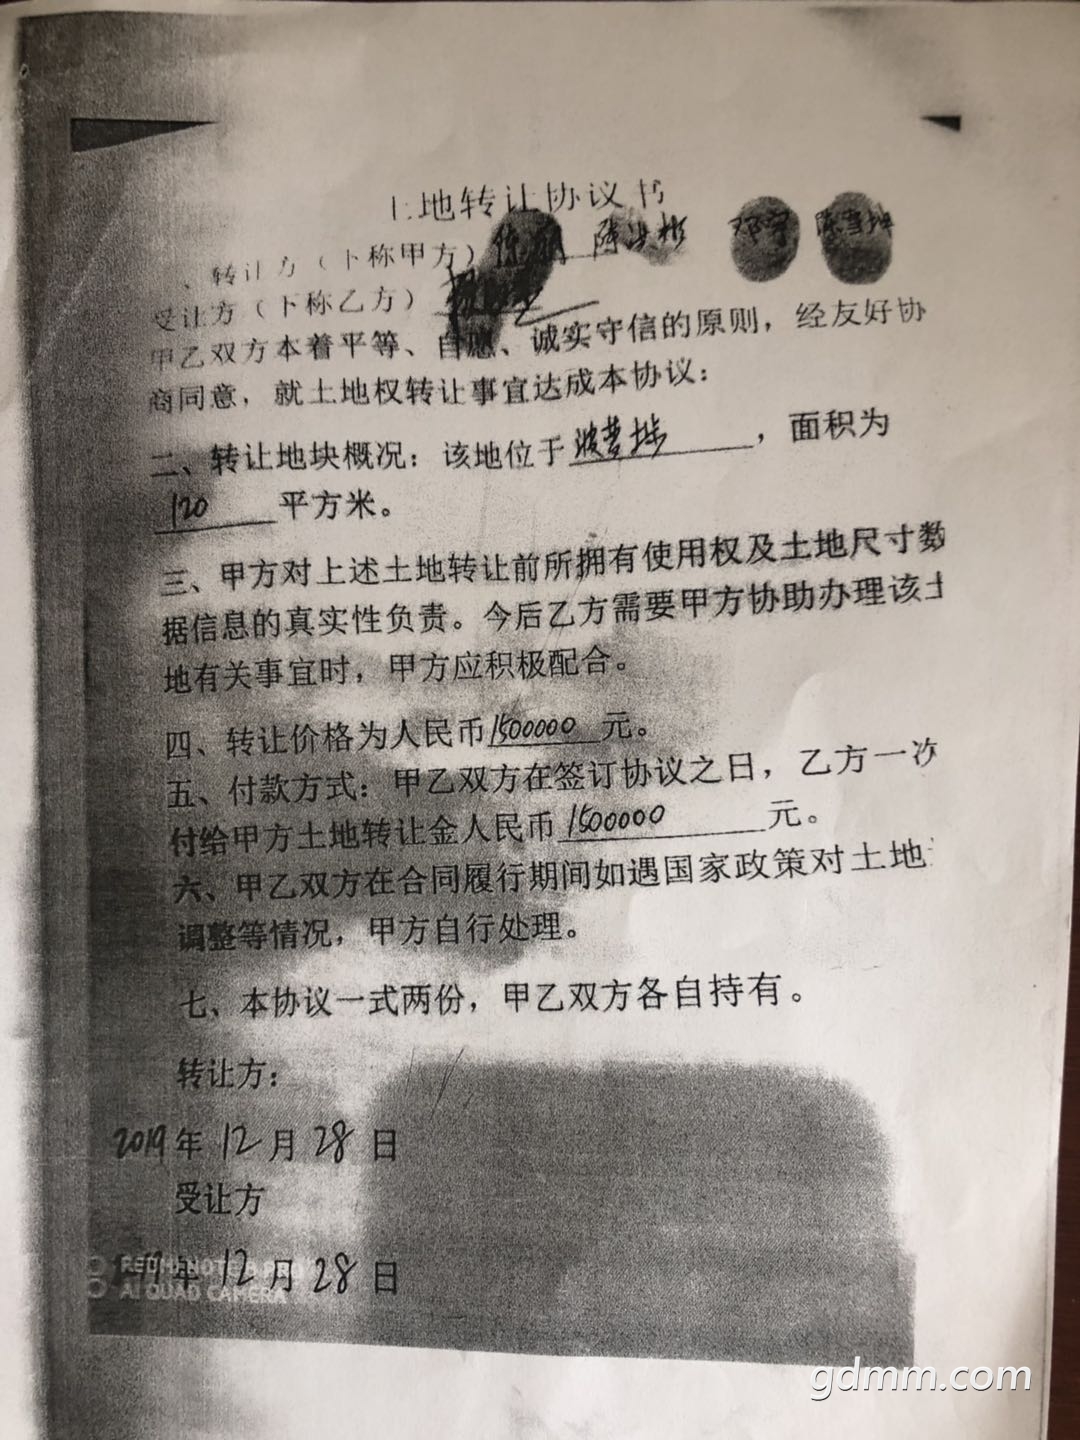 土地转让协议书
、转让方（下称甲方）
受让方（下称乙方）
甲乙双方本着平等、自愿、诚实守信的原则，经友好协
商同意，就土地权转让事宜达成本协议：
二、转让地块概况：该地位于 ，面积为
120 平方米。
三、甲方对上述土地转让前所拥有使用权及土地尺寸数
据信息的真实性负责。今后乙方需要甲方协助办理该土
地有关事宜时，甲方应积极配合。
四、转让价格为人民币1500000元。
五、付款方式：甲乙双方在签订协议之日，乙方一次
付给甲方土地转让金人民币1500000元。
六、甲乙双方在合同履行期间如遇国家政策对土地
调整等情况，甲方自行处理。
七、本协议一式两份，甲乙双方各自持有。
转让方：
2019年12月28日
受让方
年12月28日
REDMI NOTE 8 PRO
AI QUAD CAMERA
gdmm.com